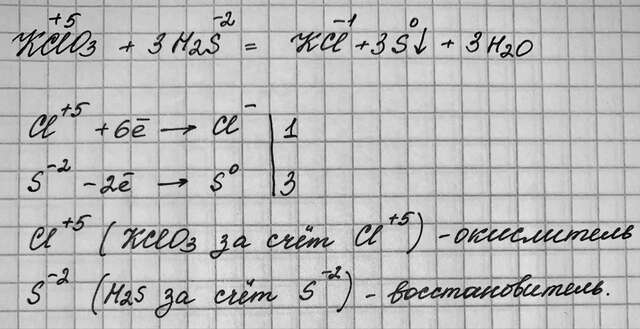 KCl⁺⁵O₃ + 3H₂S⁻² = KCl⁻¹ + 3S⁰↓ + 3H₂O
Cl⁺⁵ + 6ē → Cl⁻ | 1
S⁻² - 2ē → S⁰ | 3
Cl⁺⁵ (KClO₃ за счёт Cl⁺⁵) - окислитель
S⁻² (H₂S за счёт S⁻²) - восстановитель.